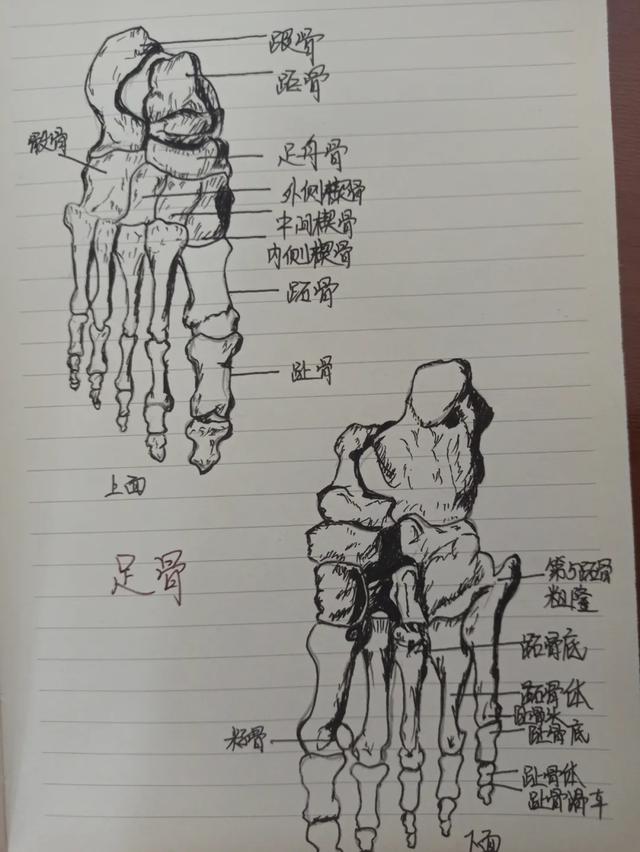 跟骨
距骨
骰骨
足舟骨
外侧楔骨
中间楔骨
内侧楔骨
跖骨
趾骨
上面
足骨
第5跖骨
粗隆
跖骨底
跖骨体
趾骨头
趾骨底
籽骨
趾骨体
趾骨滑车
下面